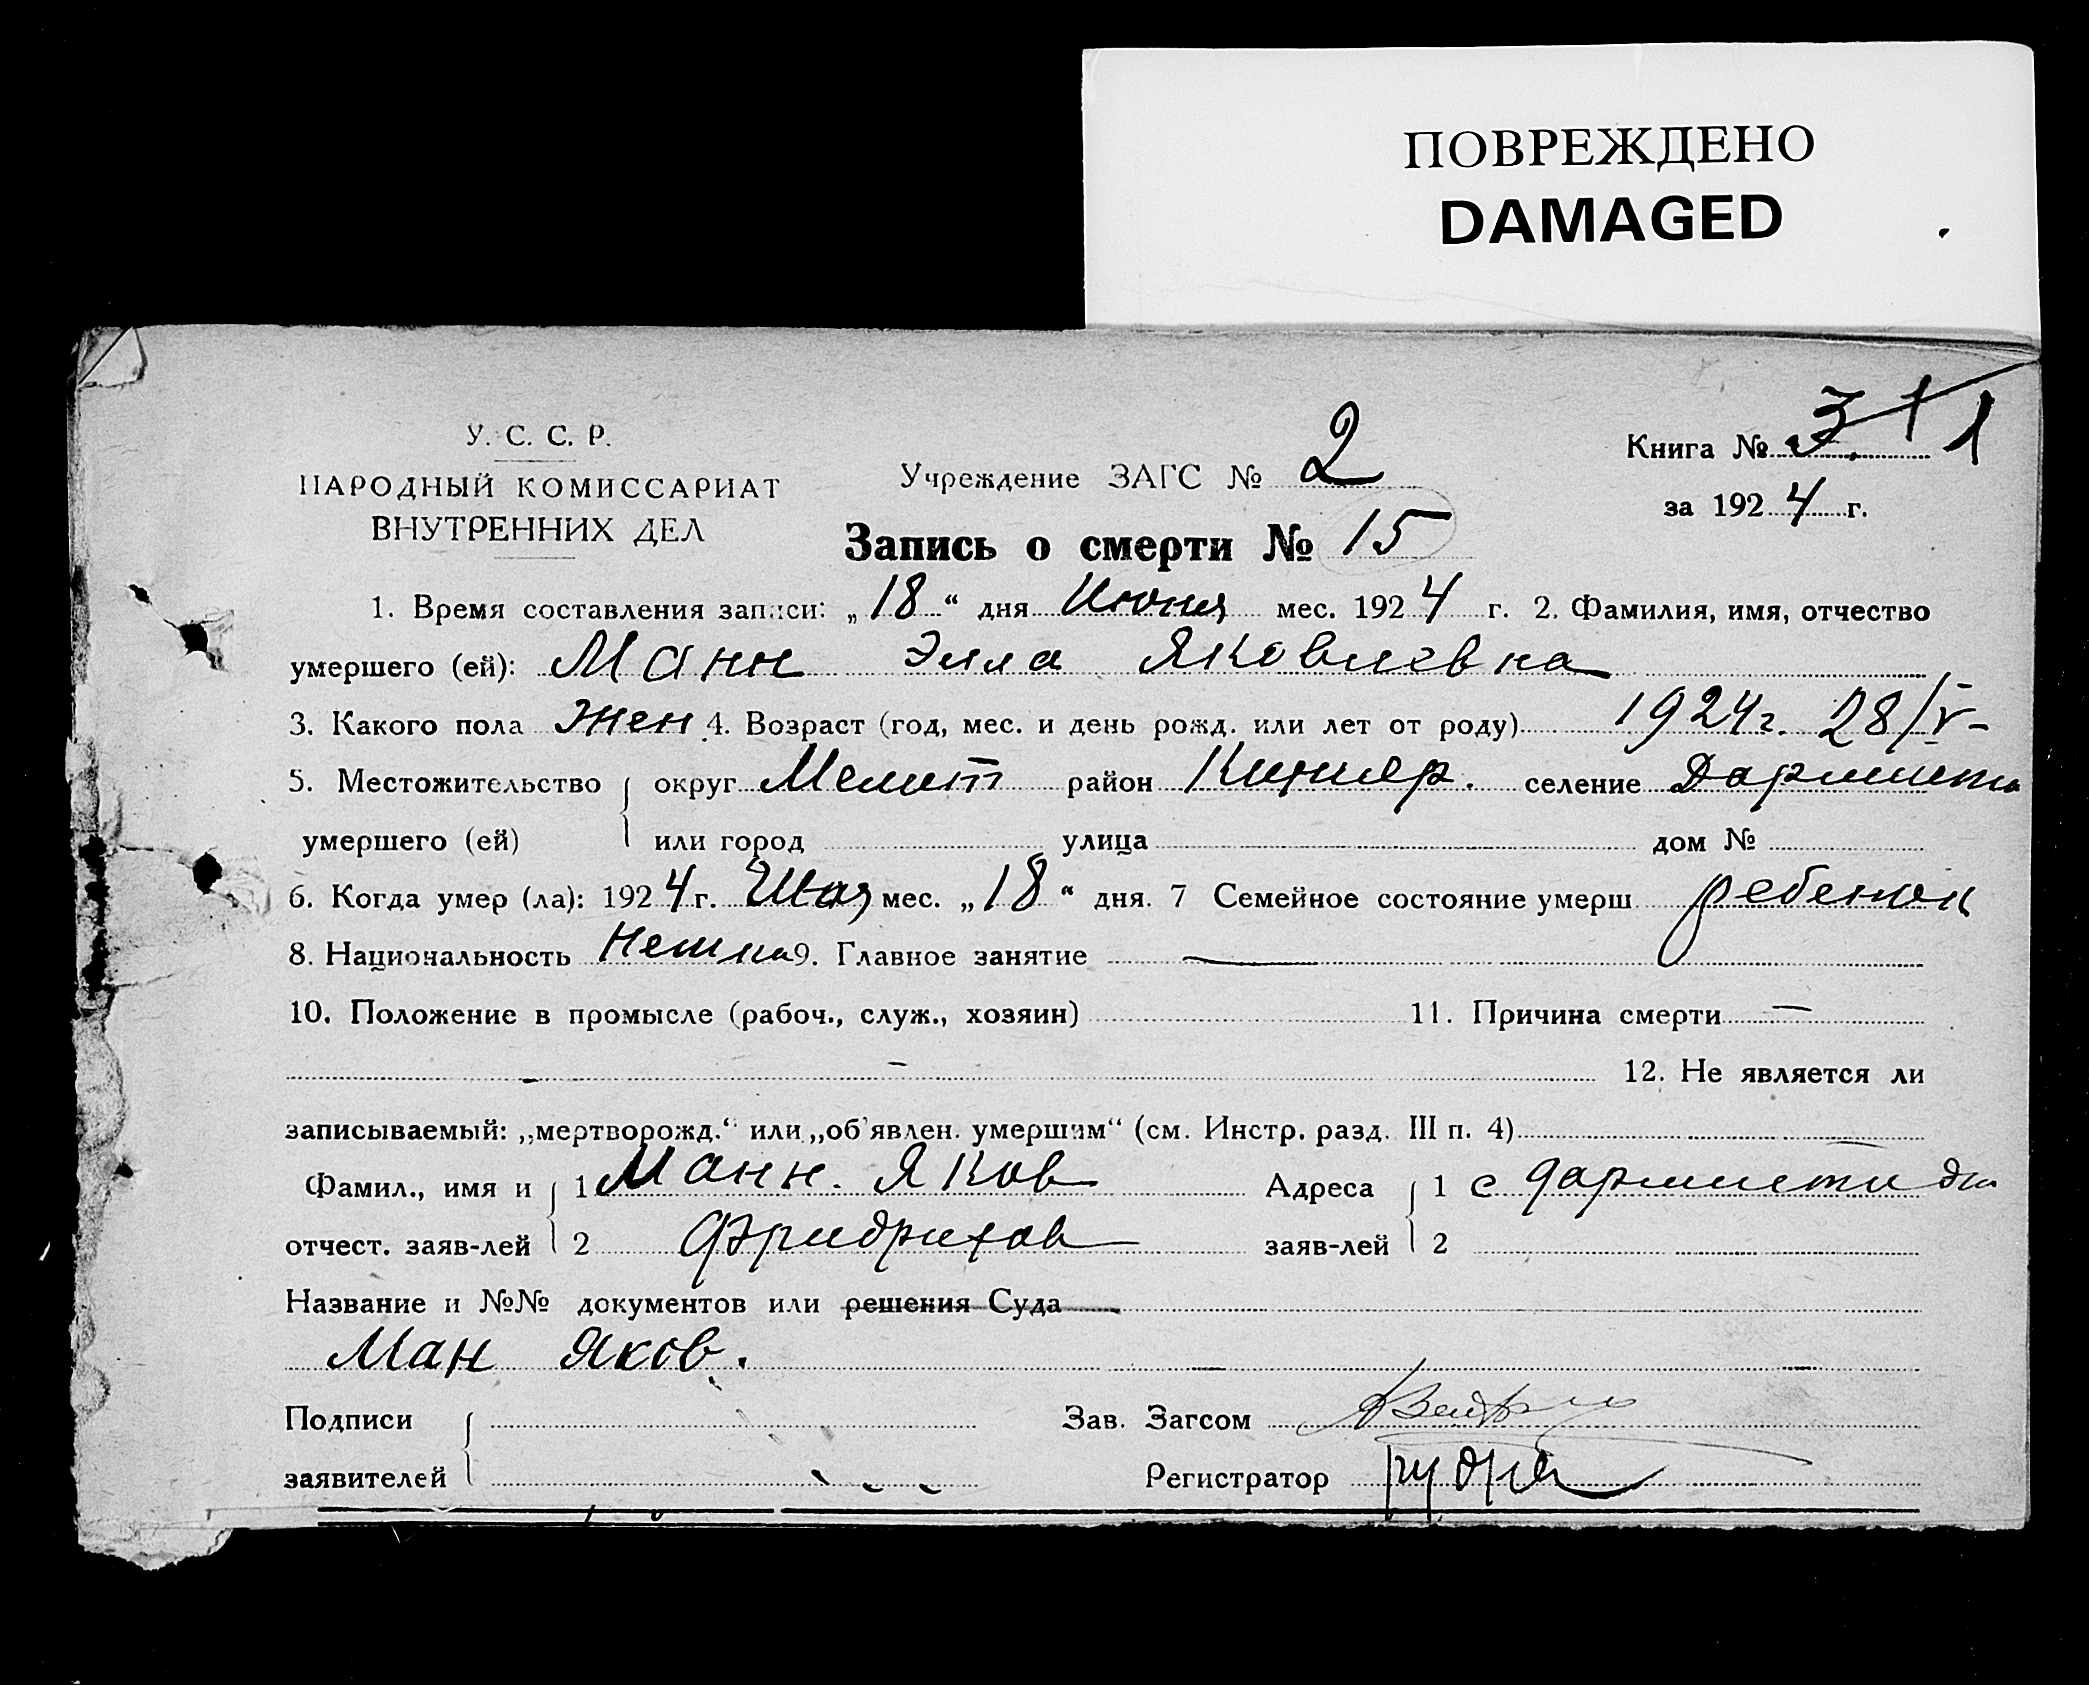 ПОВРЕЖДЕНО
DAMAGED
У. С. С. Р.
НАРОДНЫЙ КОМИССАРИАТ
ВНУТРЕННИХ ДЕЛ
Учреждение ЗАГС № 2
Книга № 3. 1 1
за 1924 г.
Запись о смерти № 15
1. Время составления записи: „18“ дня Июня мес. 1924 г. 2. Фамилия, имя, отчество
умершего (ей): Манн Элла Яковлевна
3. Какого пола Жен 4. Возраст (год, мес. и день рожд. или лет от роду) 1924г. 28/V-
5. Местожительство округ Мелит район селение Дармшта
умершего (ей) или город улица дом №
6. Когда умер (ла): 1924 г. мес. „18“ дня. 7 Семейное состояние умерш ребенок
8. Национальность Немка 9. Главное занятие —
10. Положение в промысле (рабоч., служ., хозяин) 11. Причина смерти —
12. Не является ли
записываемый: „мертворожд.“ или „об'явлен. умершим“ (см. Инстр. разд. III п. 4)
Фамил., имя и 1 Манн. Яков Адреса 1 с Дармштадт
отчест. заяв-лей 2 Фридрихов заяв-лей 2
Название и №№ документов или решения Суда
Ман Яков.
Подписи Зав. Загсом
заявителей Регистратор